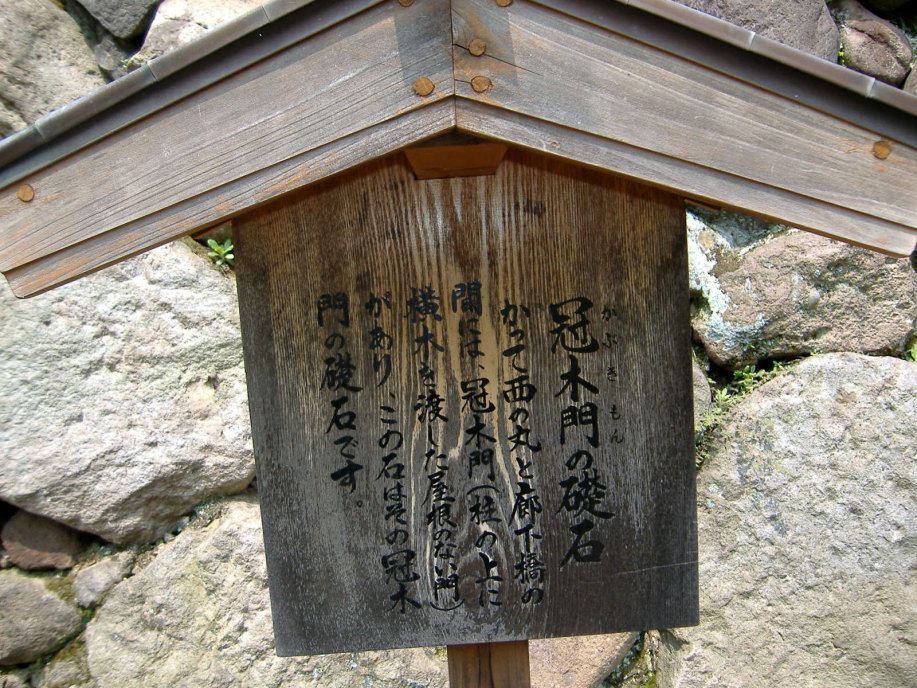 冠木門の礎石
かぶきもん
かつて西の丸と廊下橋の
間には、冠木門(柱の上に
横木を渡した屋根のない門)
があり、この石はその冠木
門の礎石です。